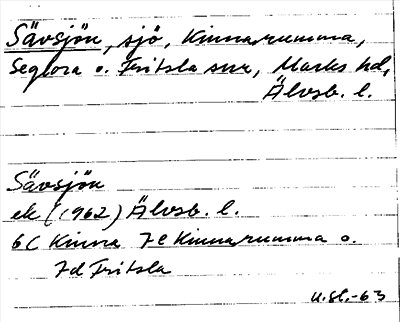 Sävsjön, sjö, Kinnarumma,
Seglora o. Fritsla snr, Marks hd,
Älvsb. l.
Sävsjön
ek (1962) Älvsb. l.
6C Kinna 7e Kinnarumma o.
7d Fritsla
u.sl.-63